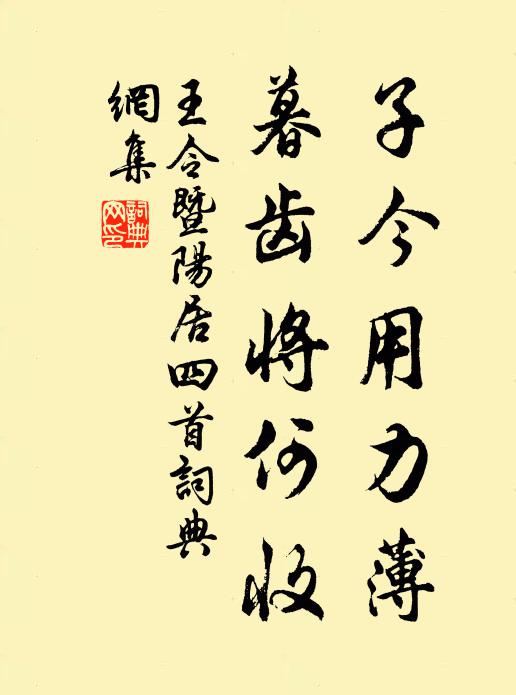 子今用力薄
暮齿將何收
王令暨陽居四首詞典
網集
詞典
网印